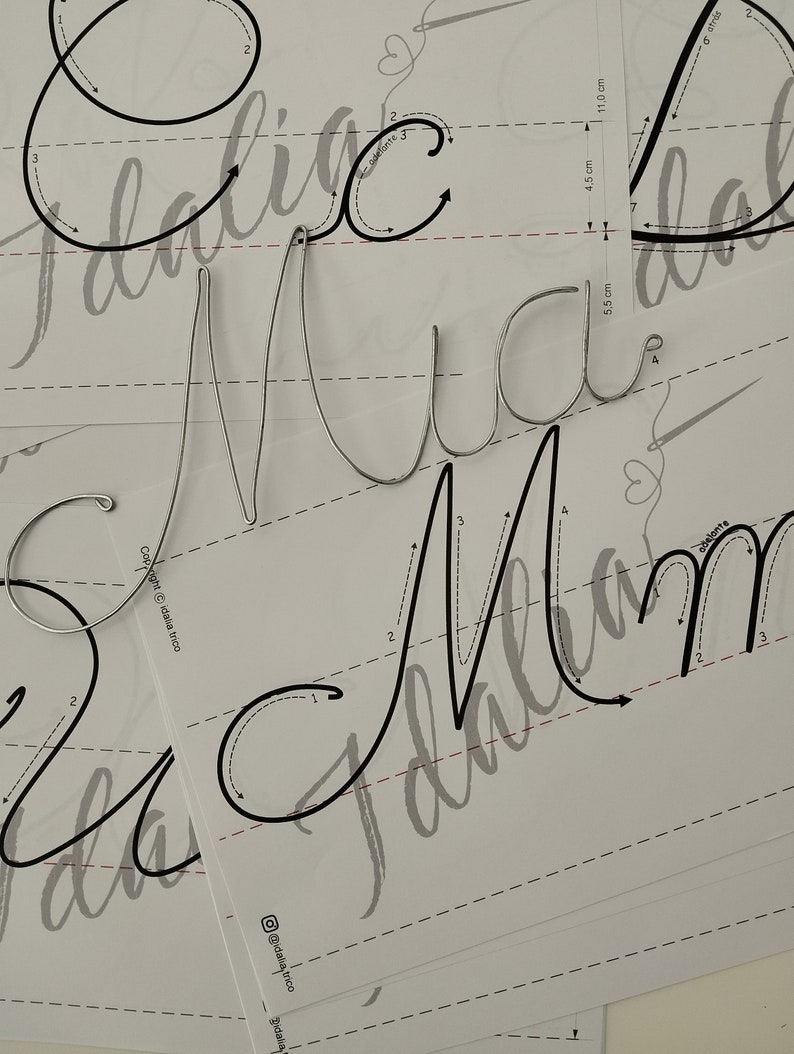 1
2
σ atrás
2
Idalia
2
3
adelante
11,0 cm
3
4,5 cm
c
7
3
5,5 cm
Mia
4
Copyright © idalia.trico
M
m
3
4
adelante
1
2
2
3
1
2
Idalia
Idalia
@idalia.trico
@idalia